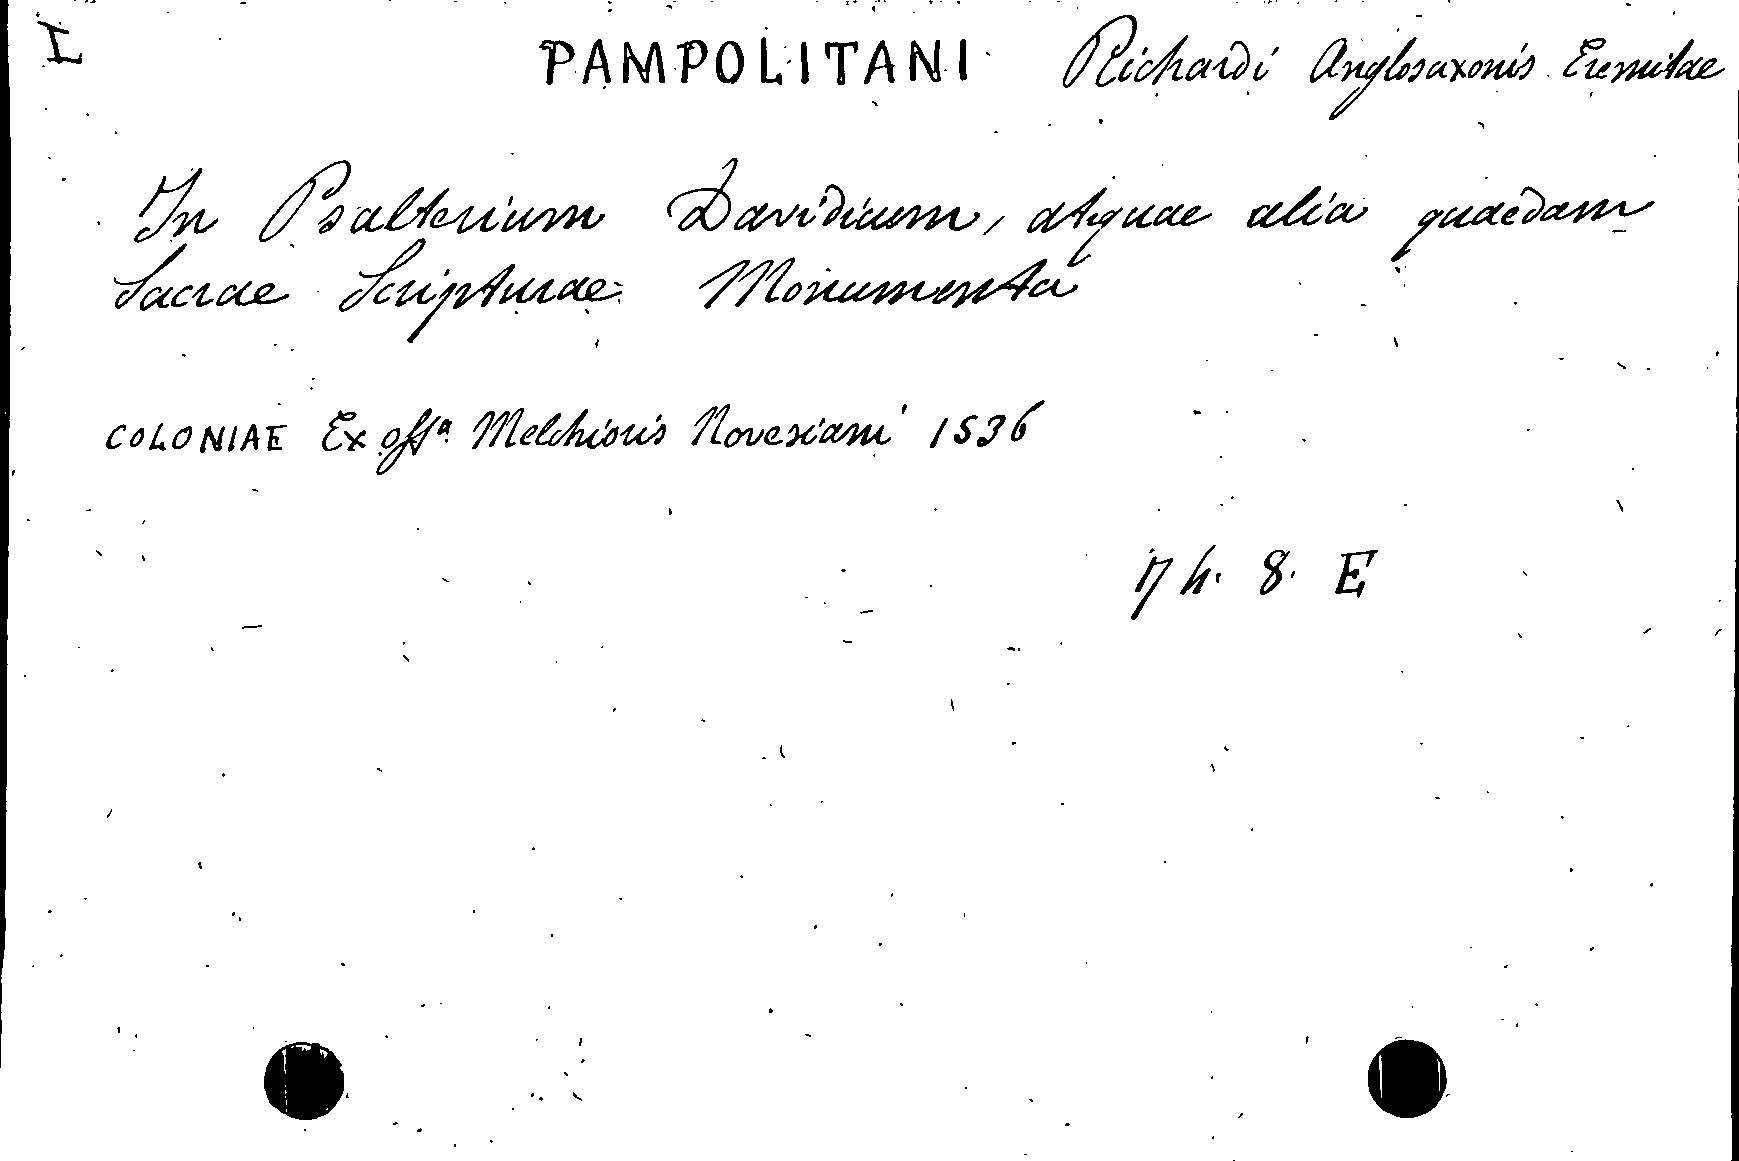 I PAMPOLITANI Richardi Anglosaxonis Eremitae
In Psalterium Davidicum, atquae alia quaedam
Sacrae Scripturae Monumenta
COLONIAE Ex offa. Melchioris Novesiani 1536
17 h. 8. E